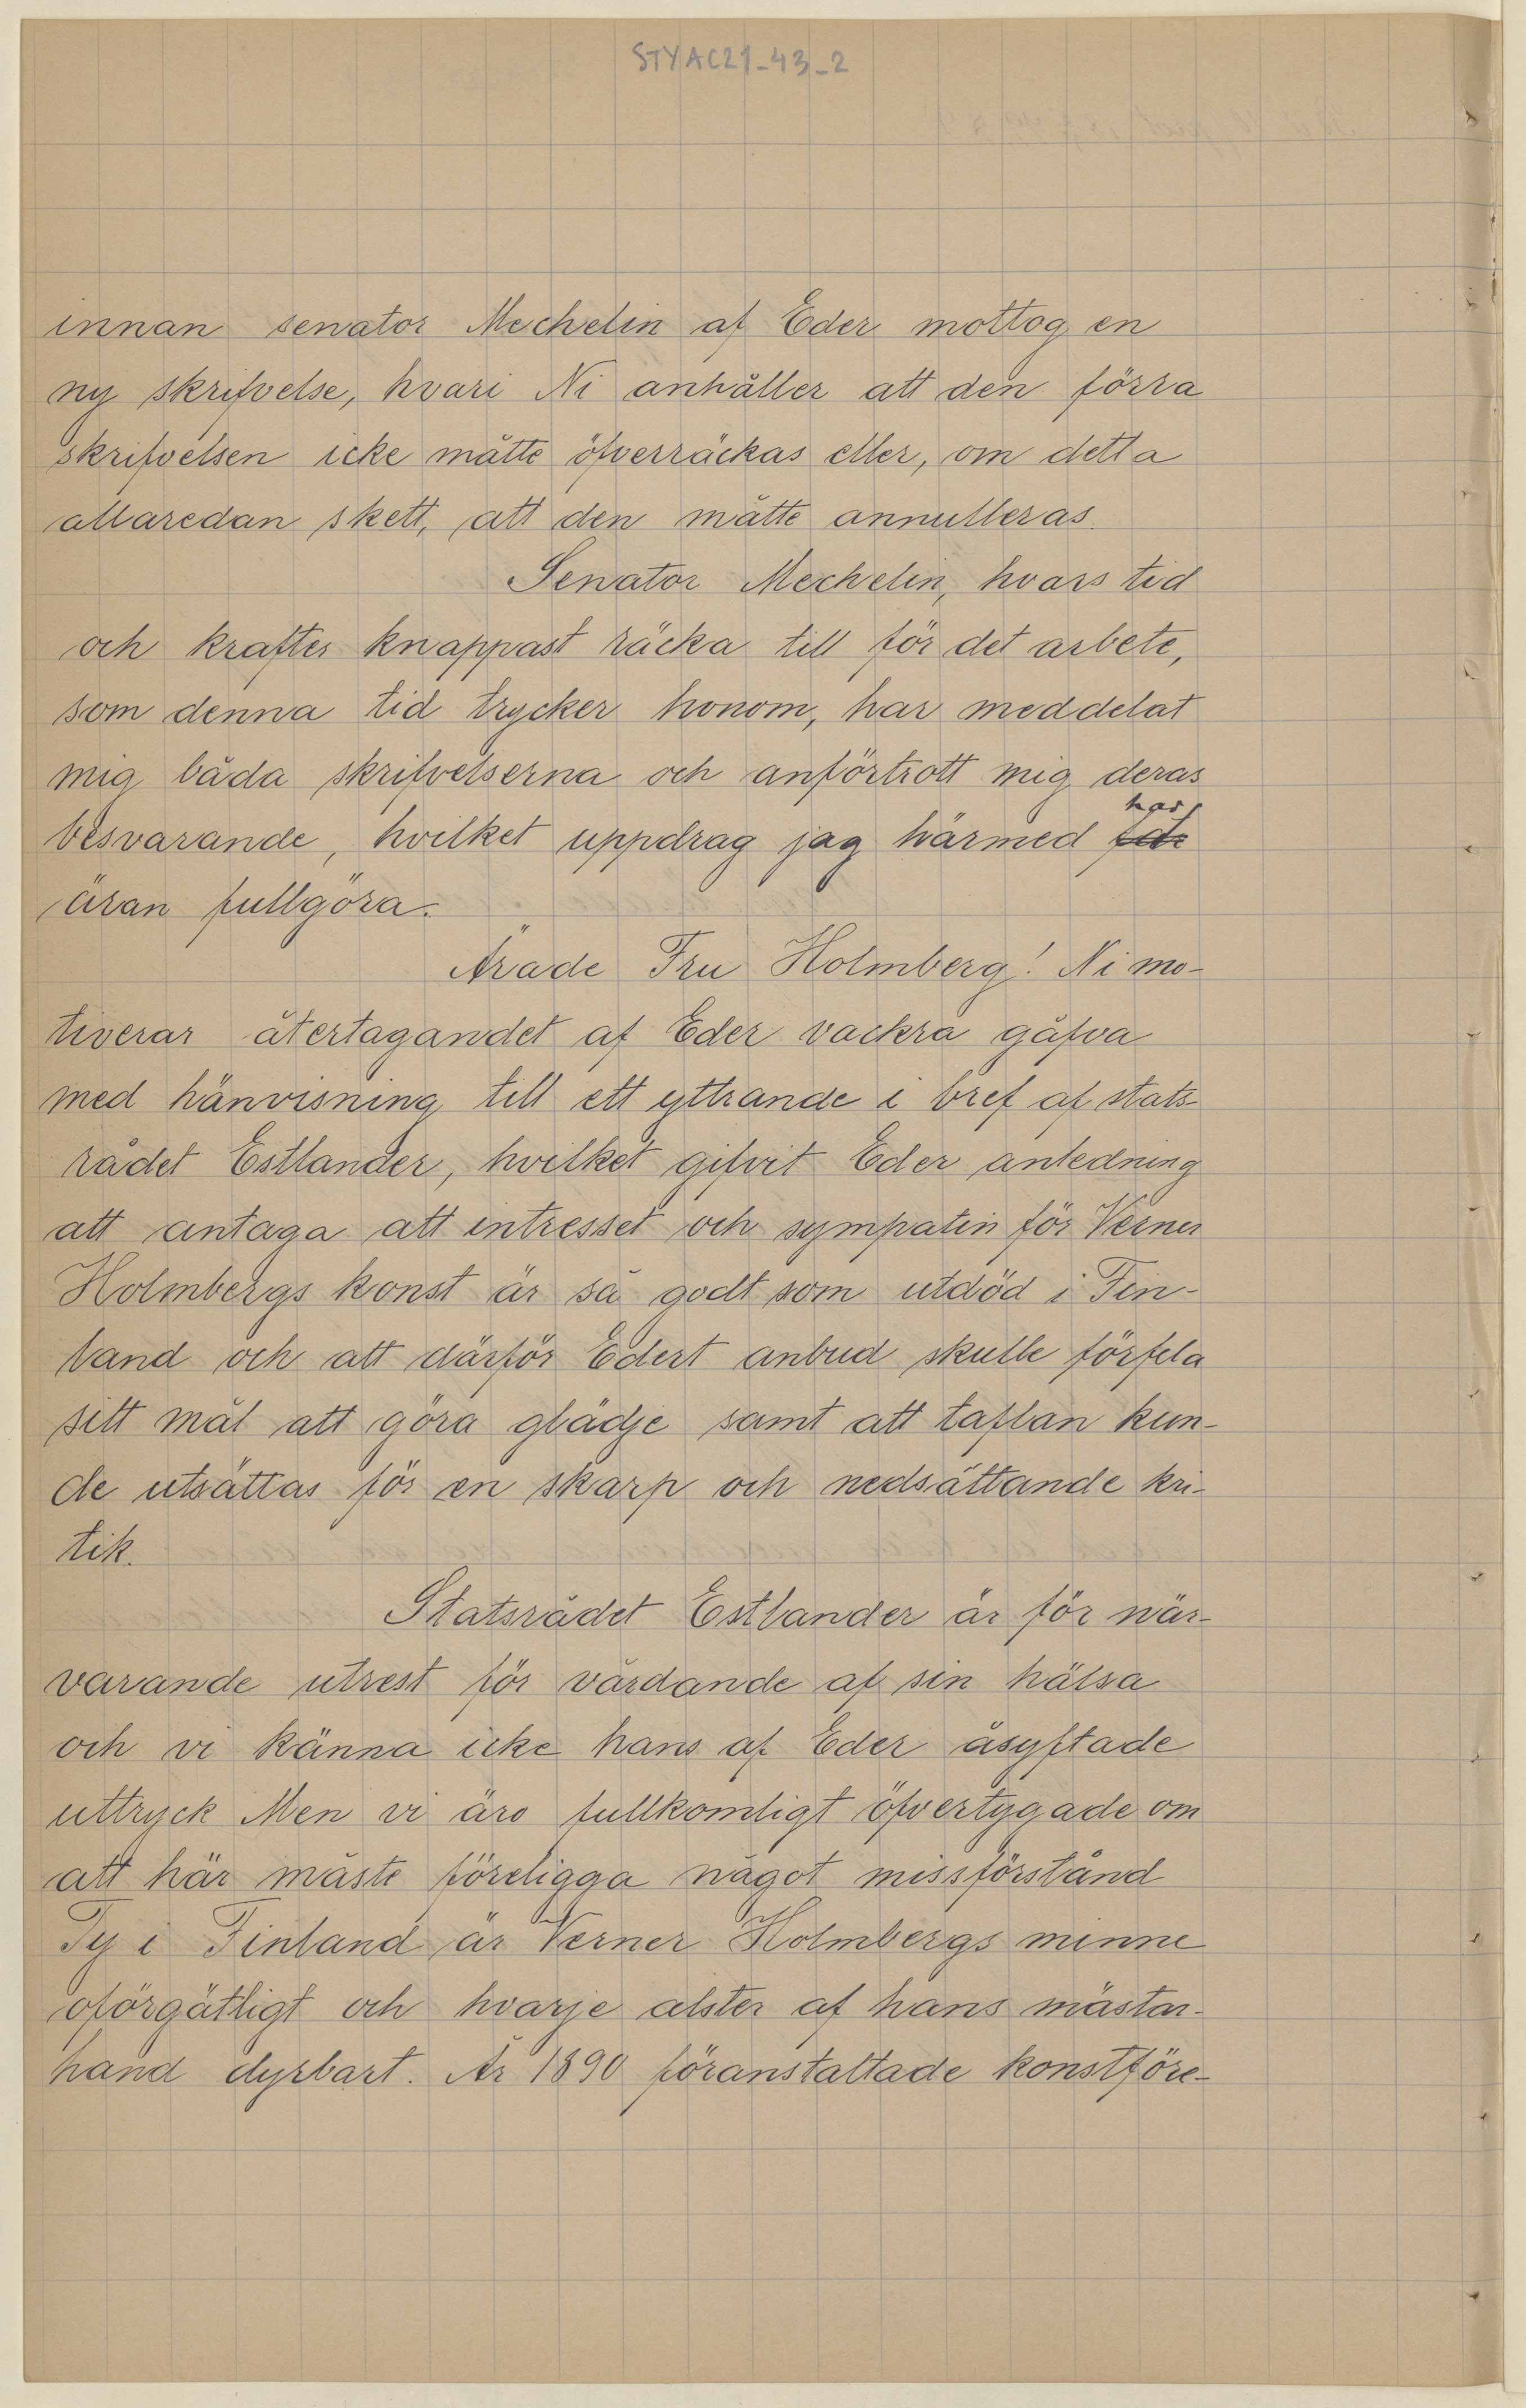 STYAC21-43-2
innan senator Mechelin af Eder mottog en
ny skrifvelse, hvari Ni anhåller att den förra
skrifvelsen icke måtte öfverräckas eller, om detta
allaredan skett, att den måtte annulleras.
Senator Mechelin, hvars tid
och krafter knappast räcka till för det arbete,
som denna tid trycker honom, har meddelat
mig båda skrifvelserna och anförtrott mig deras
har
besvarande, hvilket uppdrag jag härmed
äran fullgöra.
Ärade Fru Holmberg! Ni mo-
tiverar återtagandet af Eder vackra gåfva
med hänvisning till ett yttrande i bref af stats-
rådet Estlander, hvilket gifvit Eder anledning
att antaga att intresset och sympatin för Verner
Holmbergs konst är så godt som utdöd i Fin-
land och att därför Edert anbud skulle förfela
sitt mål att göra glädje samt att taflan kun-
de utsättas för en skarp och nedsättande kri-
tik.
Statsrådet Estlander är för när-
varande utrest för vårdande af sin hälsa
och vi känna icke hans af Eder åsyftade
uttryck Men vi äro fullkomligt öfvertygade om
att här måste föreligga något missförstånd
Ty i Finland är Verner Holmbergs minne
oförgätligt och hvarje alster af hans mästar-
hand dyrbart. År 1890 föranstaltade konstföre-